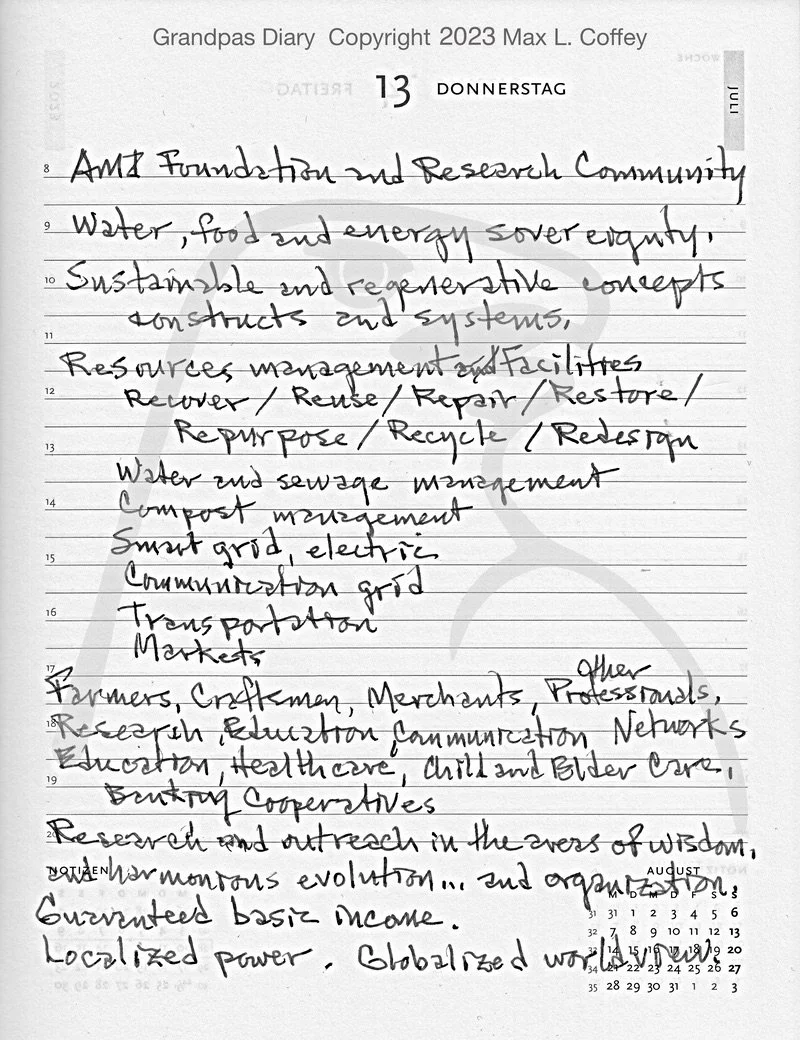 Grandpas Diary Copyright 2023 Max L. Coffey
WOCHE
2023
FREITAG
13 DONNERSTAG
JULI
8 AMI Foundation and Research Community
9 Water, food and energy sovereignty.
10 Sustainable and regenerative concepts
constructs and systems.
11
Resources management and Facilities
12 Recover / Reuse / Repair / Restore /
13 Repurpose / Recycle / Redesign
Water and sewage management
14 Compost management
Smart grid, electric
15
Communication grid
16 Transportation
Markets
17 other
Farmers, Craftsmen, Merchants, Professionals,
18 Research, Education Communication Networks
Education, Healthcare, Child and Elder Care,
19
Banking Cooperatives
20 Research and outreach in the areas of wisdom,
NOTIZEN AUGUST
and harmonious evolution... and organization.
M D M D F S S
31 31 1 2 3 4 5 6
Guaranteed basic income.
32 7 8 9 10 11 12 13
Localized power. Globalized world view.
33 14 15 16 17 18 19 20
34 21 22 23 24 25 26 27
35 28 29 30 31 1 2 3